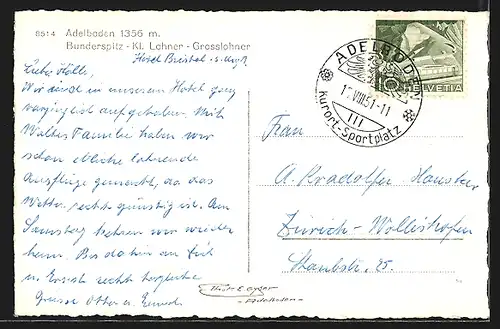 8514 Adelboden 1356 m.
Bunderspitz - Kl. Lohner - Grosslohner
Hotel Bristol
Wir sind in unserem Hotel ganz
vorzüglich aufgehoben. Mit
Walter's Familie haben wir
schon etliche lohnende
Ausflüge gemacht, da das
Wetter recht günstig ist. Am
Samstag kehren wir wieder
heim. Bis dahin an Euch
recht herzliche
Grüsse Otto u.
ADELBODEN
VIII 51-11
III
Kurort-Sportplatz
10
HELVETIA
Frau
A. Kradolfer
Zürich-Wollishofen
35.
-Adelboden-